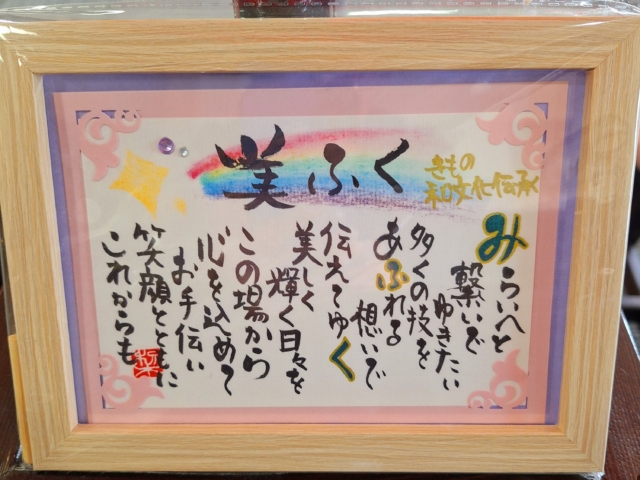 美ふく
きもの
和文化伝承
みらいへと
繋いで
ゆきたい
多くの技を
あふれる
想いで
伝えてゆく
美しく
輝く日々を
この場から
心を込めて
お手伝い
笑顔とともに
これからも
梨